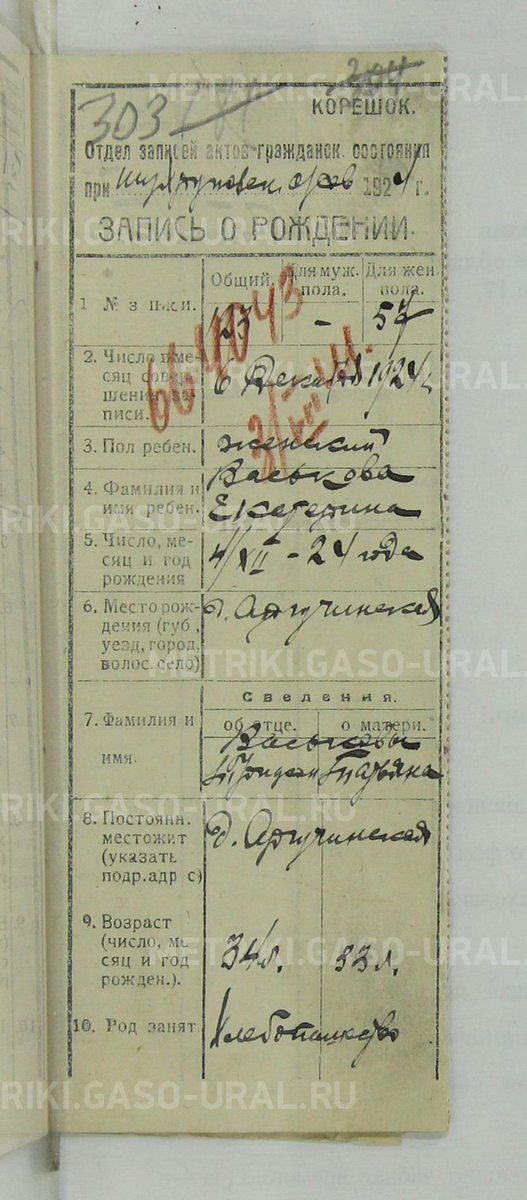 303
304
КОРЕШОК.
Отдел записей актов гражданск. состояния
при 1924 г.
ЗАПИСЬ О РОЖДЕНИИ
Общий. Для муж. пола. Для жен. пола.
1 № з писи. 123 - 57
2. Число в ме-
сяц совер-
шения за-
писи. 6 Декабря 1924 г.
3. Пол ребен. женский
4. Фамилия и
имя ребен. Васькова
Екатерина
5. Число, ме-
сяц и год
рождения 4/XII - 24 года
6. Место рож-
дения (губ.,
уезд, город,
волос. село) д. Аргучинская
Сведения.
об отце. о матери.
7. Фамилия и
имя. Васьковы
Татьяна
8. Постоянн.
местожит
(указать
подр.адр с) д. Аргучинская
9. Возраст
(число, ме
сяц и год
рожден.). 34 л. 33 л.
10. Род занят Хлебопашество
664043
METRIKI.GASO-URAL.RU